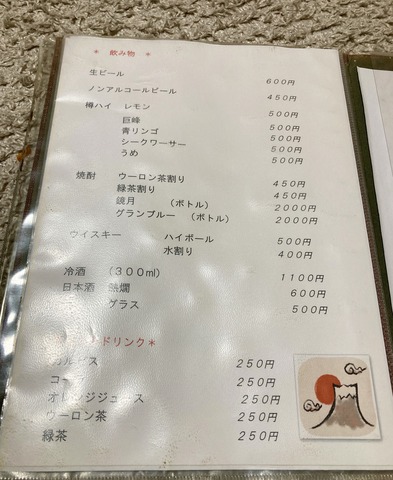 ＊ 飲み物 ＊
生ビール 600円
ノンアルコールビール 450円
樽ハイ レモン 500円
巨峰 500円
青リンゴ 500円
シークワーサー 500円
うめ 500円
焼酎 ウーロン茶割り 450円
緑茶割り 450円
鏡月 （ボトル） 2000円
グランブルー （ボトル） 2000円
ウイスキー ハイボール 500円
水割り 400円
冷酒 （300ml） 1100円
日本酒 熱燗 600円
グラス 500円
ドリンク＊
カルピス 250円
コー 250円
オレンジジュース 250円
ウーロン茶 250円
緑茶 250円